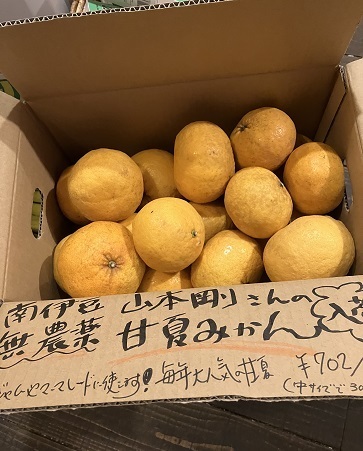 南伊豆 山本剛さんの
無農薬 甘夏みかん 入荷
ジャムやマーマレードに使えます! 毎年大人気の甘夏 ¥702/
(中サイズで 3